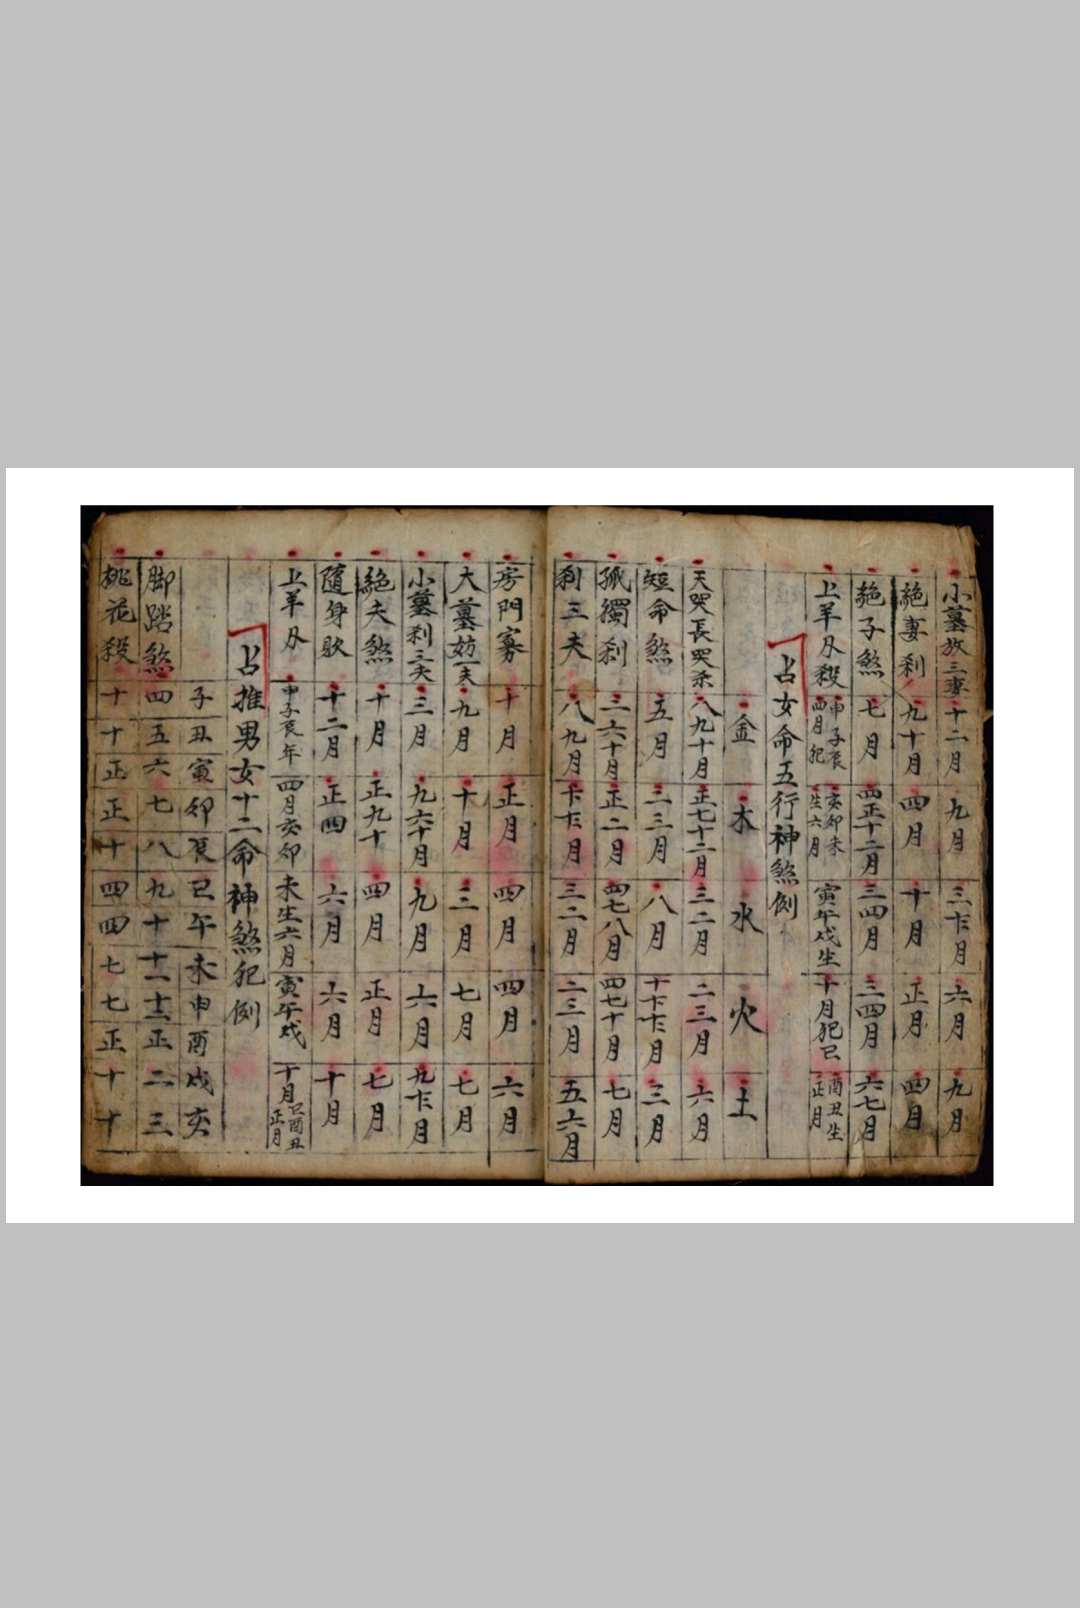 小墓妨三妻 十二月 九月 三六月 六月 九月
絕妻刹 九十月 四月 十月 正月 四月
絕子煞 七月 四正十二月 三四月 三四月 六七月
上羊刄殺 申子辰四月犯 亥卯未生六月 寅午戌生十月犯 巳酉丑生正月
占女命五行神煞例
金 木 水 火 土
天哭長哭杀 八九十月 正七十二月 三二月 二三月 六月
短命煞 五月 三三月 八月 三月
孤獨刹 三六十月 正二月 四七八月 四七十月 七月
刹三夫 八九月 三二月 二三月 五六月
房門寡 十月 正月 四月 四月 六月
大墓妨一夫 九月 十月 三月 七月 七月
小墓刹三夫 三月 九六十月 九月 六月 九十二月
絕夫煞 十月 正九十 四月 正月 七月
隨身 十二月 正四 六月 六月 十月
上羊刄 申子辰年 四月亥卯 未生六月 寅午戌 十月巳酉丑正月
占推男女十二命神煞犯例
子丑寅卯辰巳午未申酉戌亥
脚踏煞 四五六七八九十十一十二正二三
桃花殺 十十正正十四四七七正十十